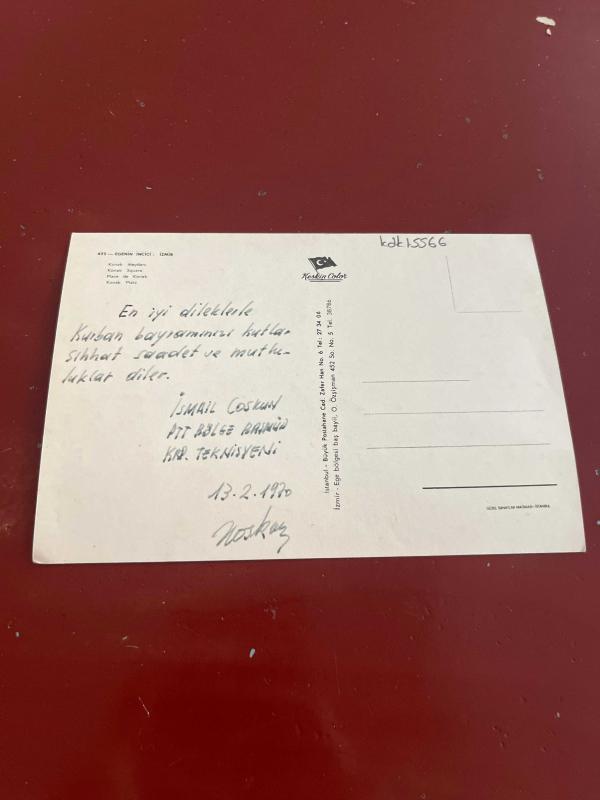 495 — EGENİN İNCİCİ: İZMİR
Konak Meydanı
Konak Square
Place de Konak
Konak Platz
kdk15566
Keskin Color
En iyi dileklerle
Kurban bayramınızı kutlar
sıhhat saadet ve mutlu-
luklar diler.
İSMAİL COŞKUN
PTT BÖLGE
TEKNİSYENİ
13.2.1970
İstanbul - Büyük Postahane Cad. Zafer Han No. 6 Tel: 27 34 04
İzmir - Ege bölgesi baş bayii, O. Özşişman 452 So. No. 5 Tel. 38786
GÜZEL SANATLAR MATBAASI-İSTANBUL